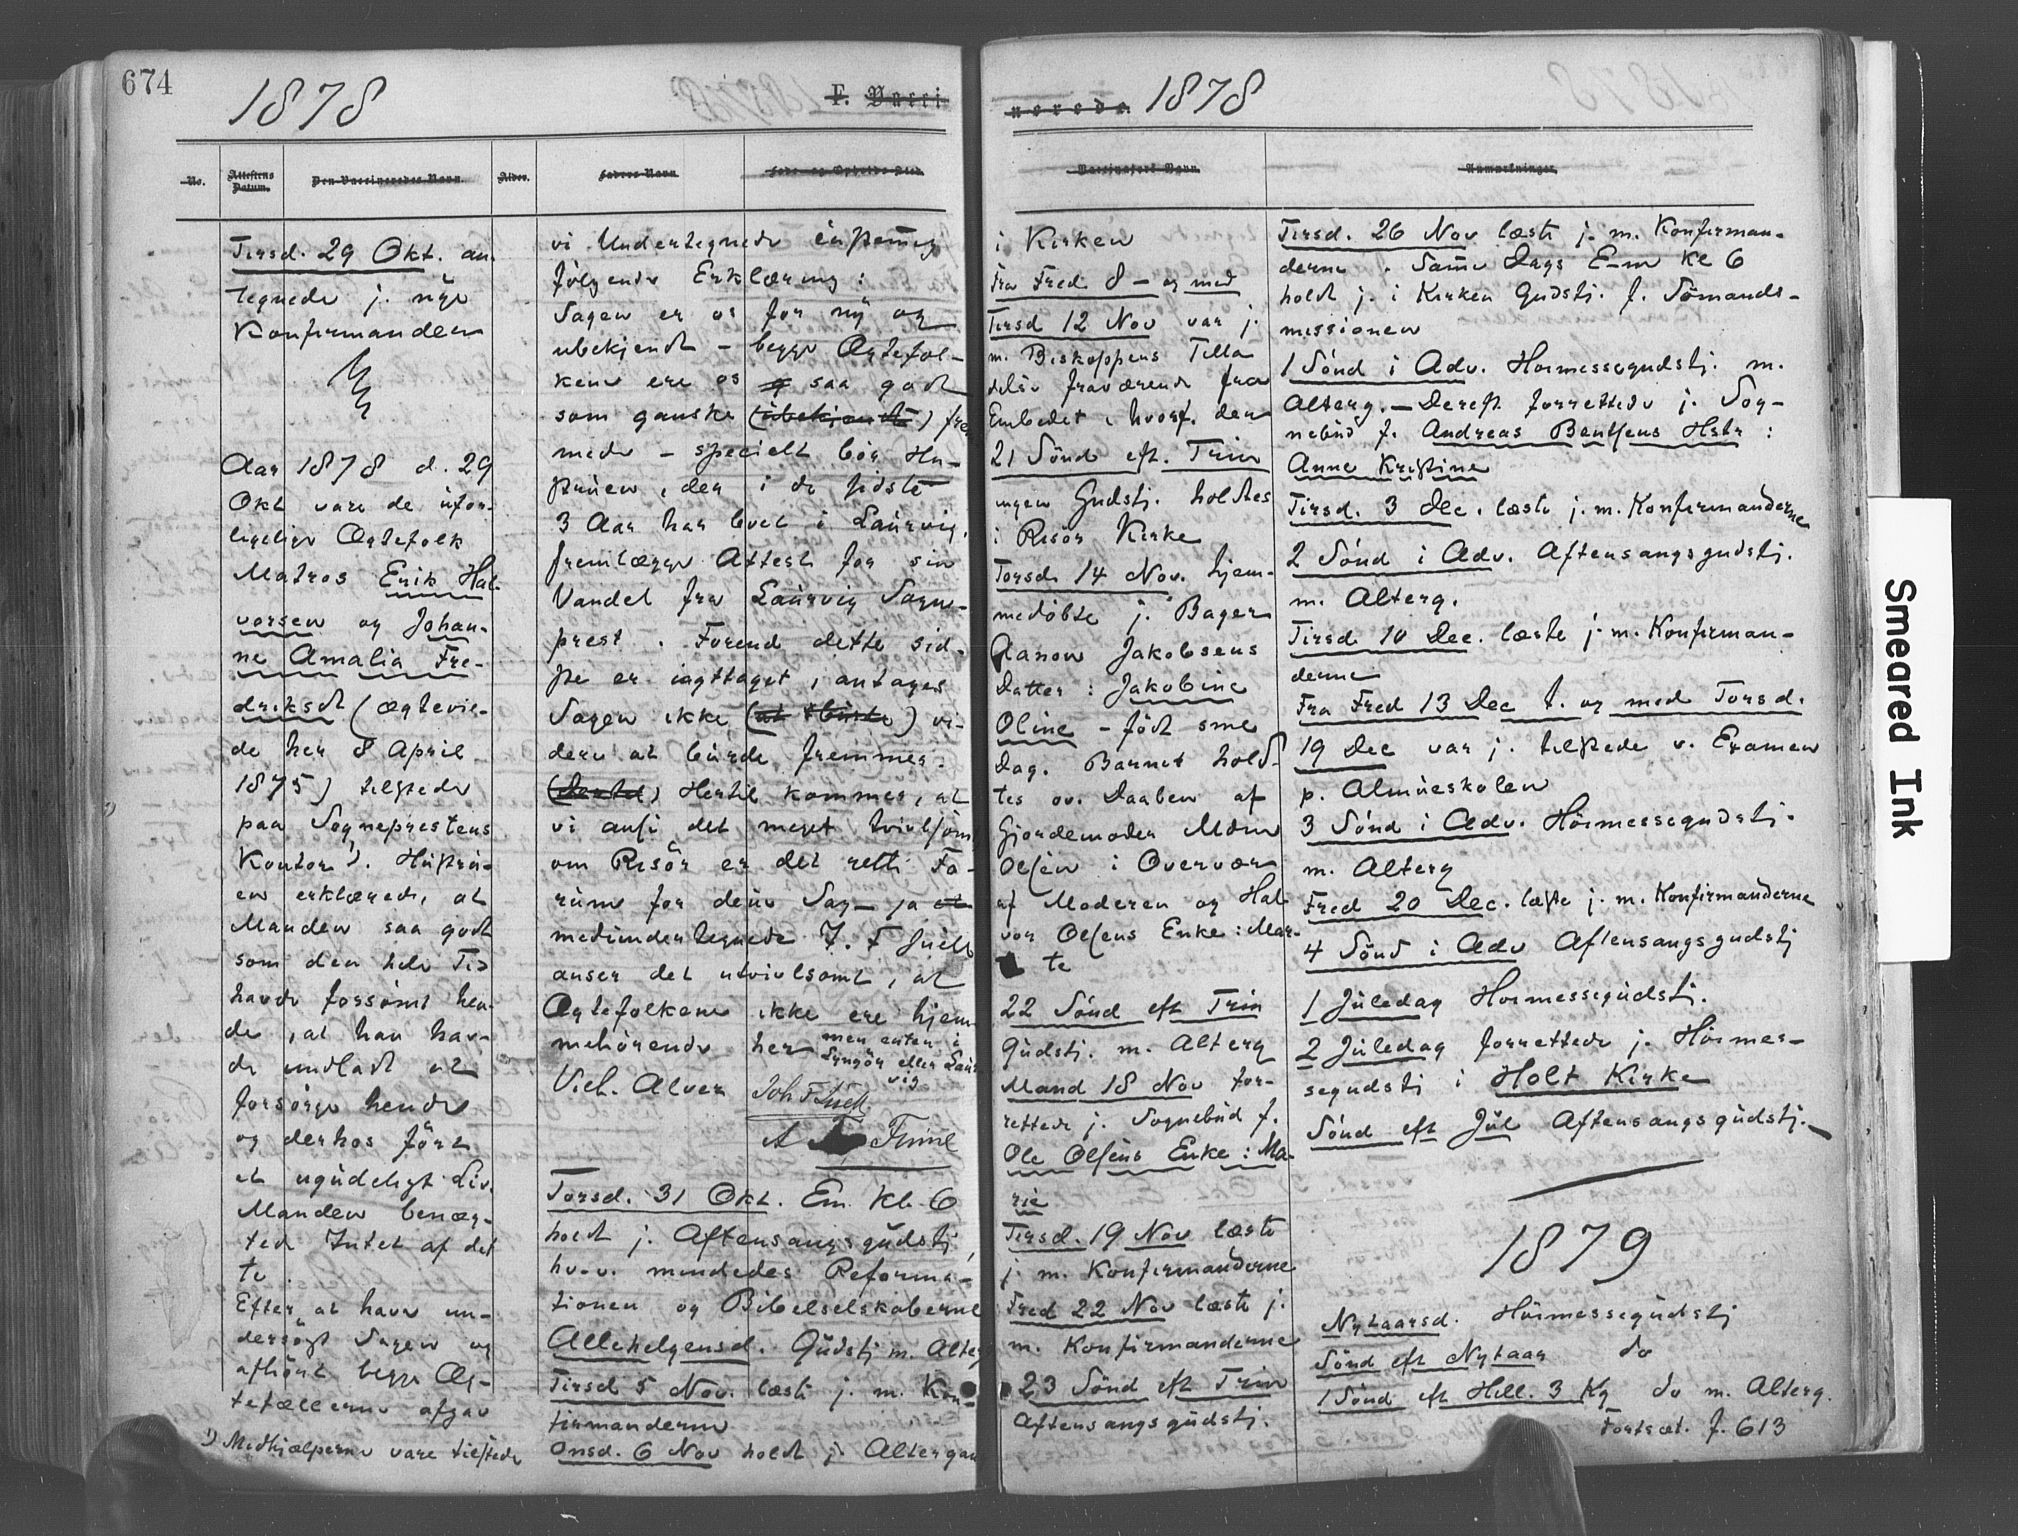 674
1878
F. Vacci-
No.
Attestens Datum.
Den Vaccineredes Navn.
Alder.
Faders Navn.
Føde- og Opholds-Sted.
Tirsd. 29 Okt. an-
tegnede j. nye
Konfirmander
Aar 1878 d. 29
Okt vare de ufor-
ligelige Ægtefolk
Matros Erik Hal-
vorsen og Johan-
ne Amalia Fre-
driksdt (ægtevie-
de her 8 April
1875) tilstede
paa Sogneprestens
Kontor 1). Hustru-
en erklærede, at
Manden saa godt
som den hele Tid
havde forsømt hen-
de, at han hav-
de undladt at
forsørge hende
og derhos ført
et ugudeligt Liv.
Manden benæg-
ted Intet af det
te.
Efter at have un-
dersøgt Sagen og
afhørt begge Æg-
tefællerne afgav
1) Medhjælperne vare tilstede
vi Undertegnede eenstemmig
følgende Erklæring:
Sagen er os for ny og
ubekjendt – begge Ægtefol-
kene ere os saa godt
som ganske (ubekjendte) frem
mede – specielt bør Hu-
struen, der i de sidste
3 Aar har levet i Laurvig,
fremlægge Attest for sin
Vandel fra Laurvig Sogne-
prest. Forend dette sid-
ste er iagttaget, antages
Sagen ikke (at burde) vi-
dere at burde fremmes.
(Dertil) Hertil kommer, at
vi anse det meget tvivlsom
om Risør er det rette Fo-
rum for dene Sag – ja
medundertegnede J. F Juell
anser det utvivlsomt, at
Ægtefolkene ikke ere hjem
mehørende her men enten i
Lyngør eller Laur
vig
Vilh. Alver Joh F Juell
A Finne
Torsd. 31 Okt. Em. Kl. 6
holdt j. Aftensangsgudstj,
hv. v. mindedes Reforma-
tionen og Bibelselskaberne
Allehelgensd. Gudstj m. Alterg
Tirsd 5 Nov. læste j. m. Kon-
firmanderne
Onsd. 6 Nov holdt j. Altergan
nerede. 1878
Vaccinators Navn.
Anmærkninger.
i Kirken
Fra Fred 8 – og med
Tirsd 12 Nov var j.
m. Biskoppens Tilla
delse fraværende fra
Embedet, hvorf. den
21 Sønd eft. Trin
ingen Gudstj. holdtes
i Risør Kirke
Torsd. 14 Nov. hjem-
medøbte j. Bager
Aanon Jakobsens
Datter: Jakobine
Oline – født sme
Dag. Barnet hold-
tes ov. Daaben af
Gjordemoder Mdm
Olsen i Overvær
af Moderen og Hal
vor Olsens Enke: Mar-
te
22 Sønd eft Trin
Gudstj. m. Alterg
Mand 18 Nov for-
rettede j. Sognebud f.
Ole Olsens Enke: Ma-
rie
Tirsd. 19 Nov læste
j. m. Konfirmanderne
Fred 22 Nov læste j.
m. Konfirmanderne
23 Sønd eft Trin
Aftensangsgudstj.
Tirsd. 26 Nov læste j. m. Konfirman-
derne. Samme Dags E-m Kl 6
holdt j. i Kirken Gudstj. f. Sømands-
missionen
1 Sønd i Adv. Høimessegudstj. m.
Alterg. – Dereft forrettede j. Sog-
nebud f. Andreas Bentsens Hstr:
Anne Kristine
Tirsd. 3 Dec. læste j. m. Konfirmanderne
2 Sønd i Adv. Aftensangsgudstj.
m. Alterg.
Tirsd 10 Dec. læste j. m. Konfirman-
derne
Fra Fred 13 Dec t. og med Torsd.
19 Dec var j. tilstede v. Examen
p. Almueskolen
3 Sønd i Adv. Høimessegudstj.
m. Alterg
Fred 20 Dec. læste j. m. Konfirmanderne
4 Sønd i Adv Aftensangsgudstj
1 Juledag Høimessegudstj.
2 Juledag forrettede j. Høimes-
segudstj i Holt Kirke
Sønd eft Jul Aftensangsgudstj.
1879
Nytaarsd. Høimessegudstj
Sønd eft Nytaar do
1 Sønd eft Hell. 3 Kg do m. Alterg.
Fortsæt. f. 613
Smeared Ink